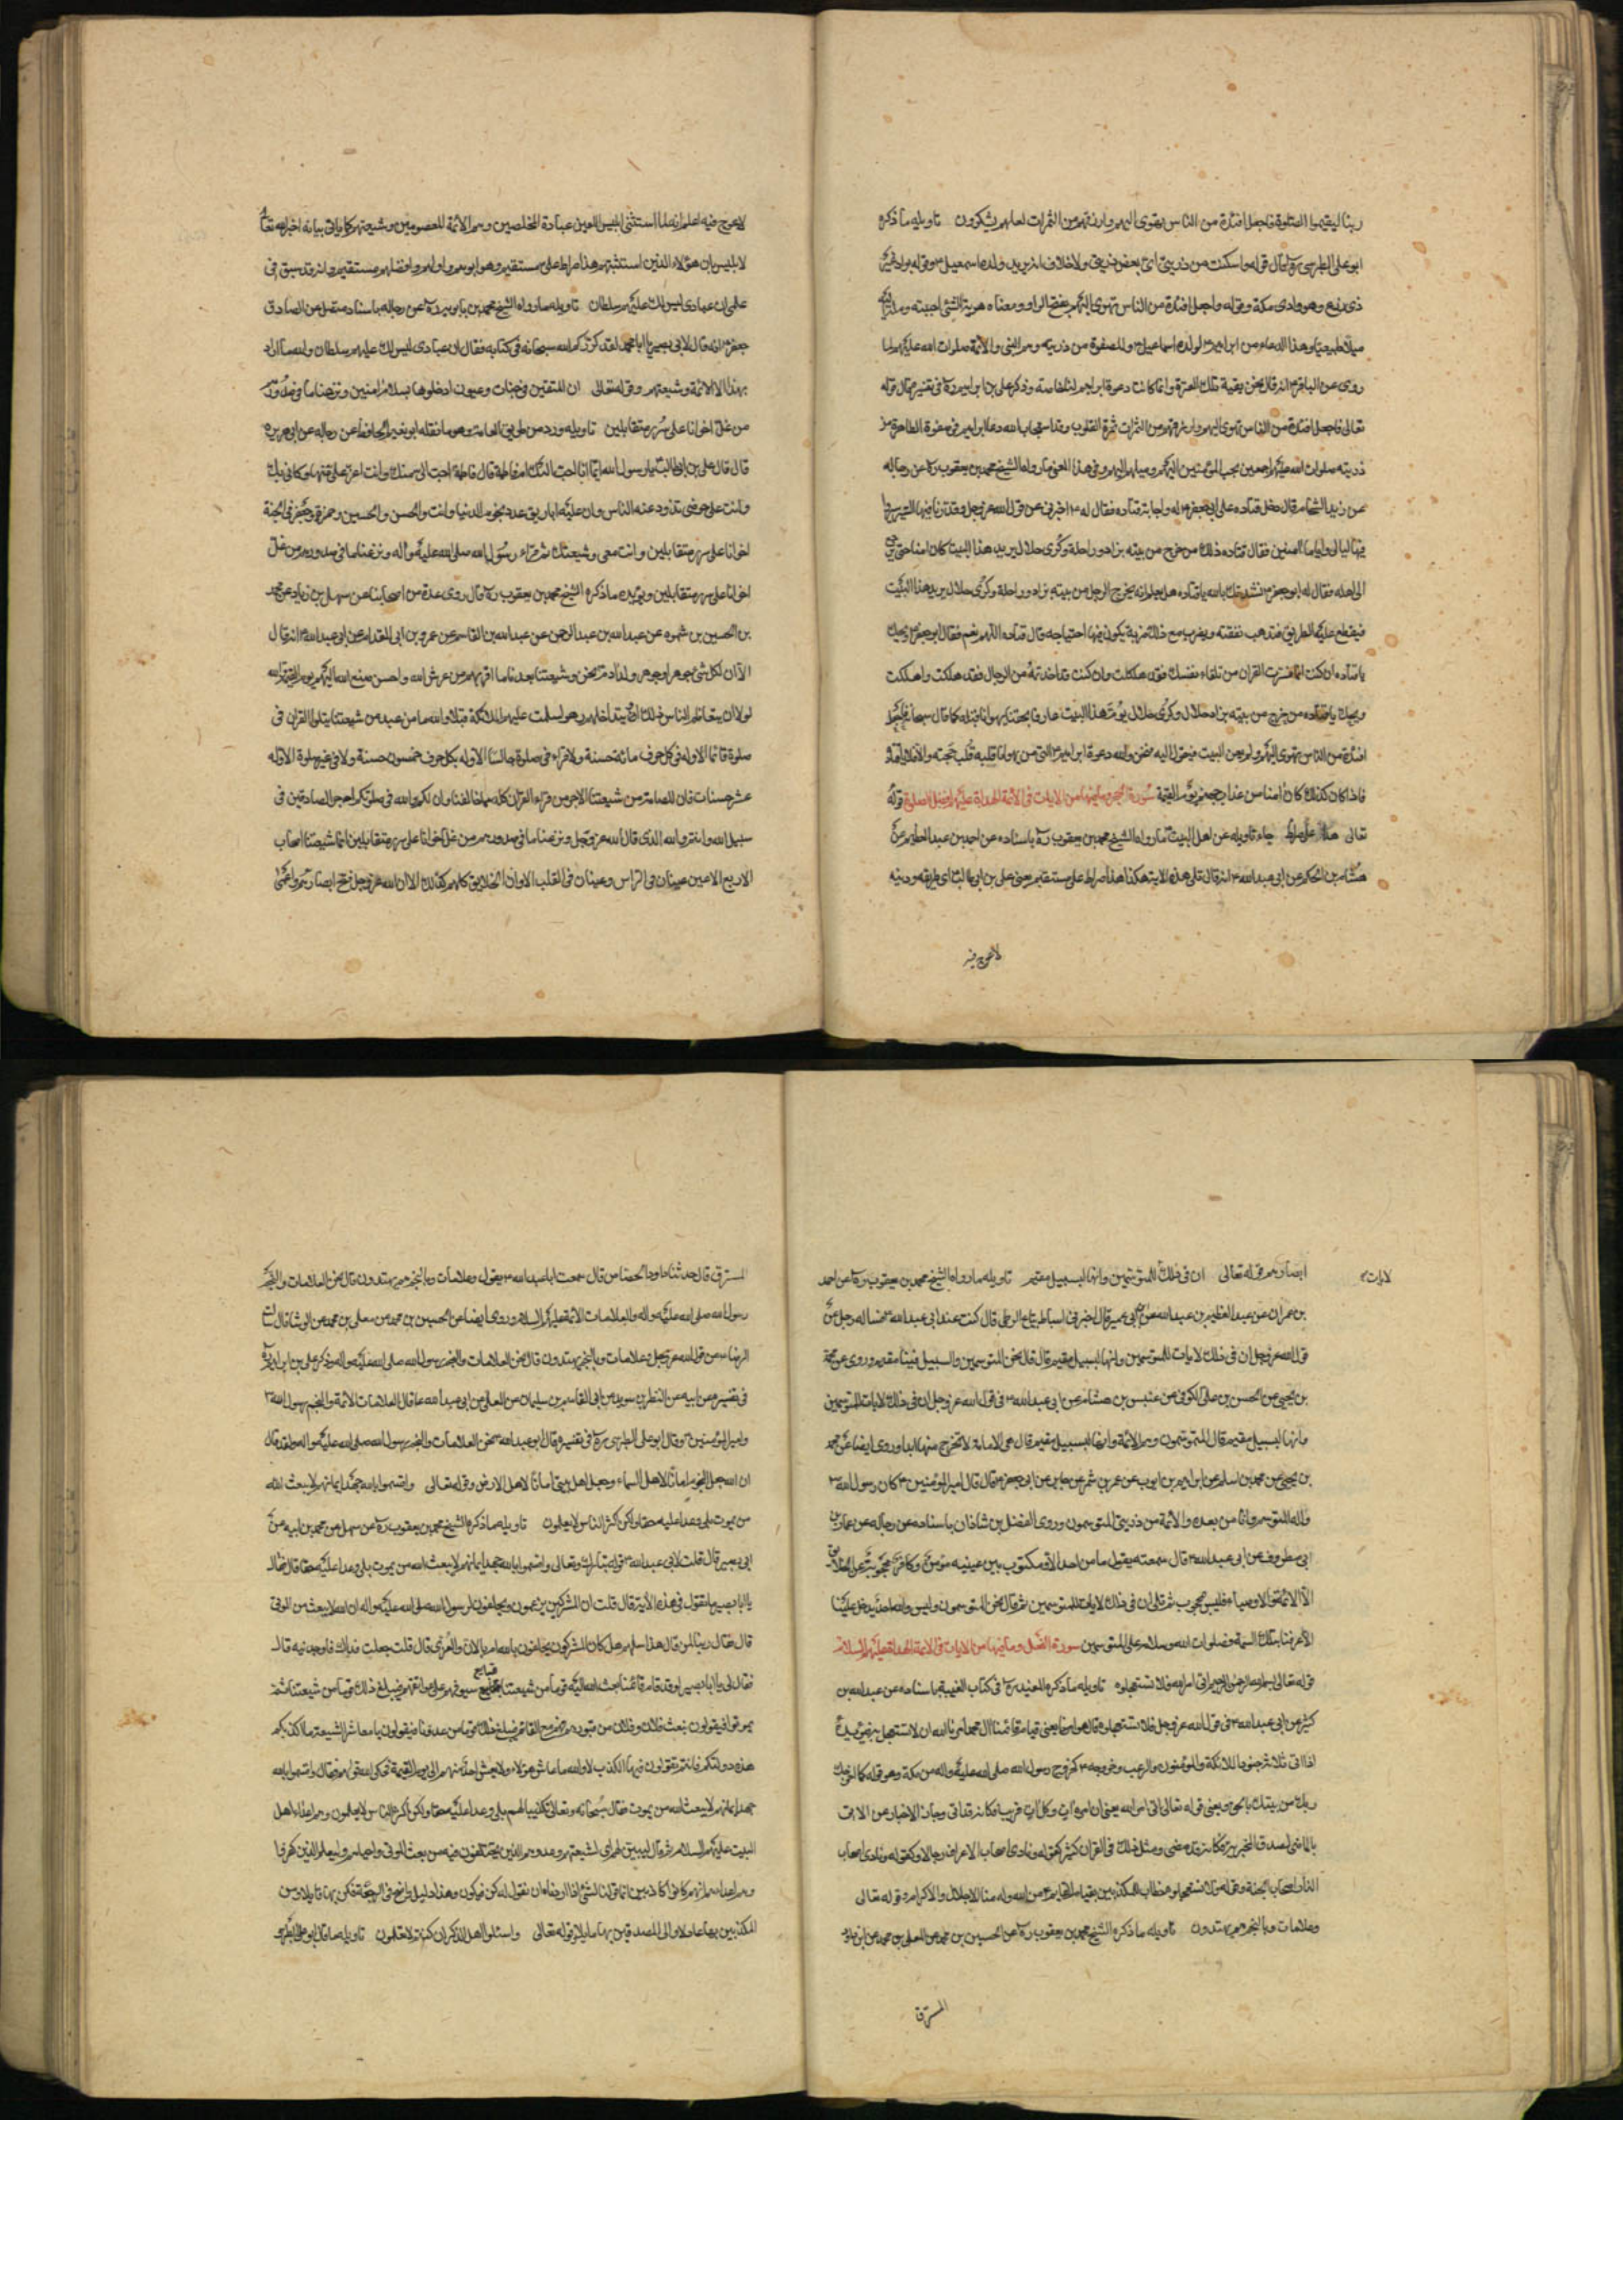 ربنا ليقيموا الصلوة فاجعل افئدة من الناس تهوى اليهم وارزقهم من الثمرات لعلهم يشكرون تاويله ما ذكره
ابو على الطبرسى ره قال قوله واسكنت من ذريتى اى بعض ذريتى ولا خلاف انه يريد ولده اسمعيل ع وقوله بواد غير
ذى زرع وهو وادى مكة وقوله واجعل افئدة من الناس تهوى اليهم بفتح الواو ومعناه هويت الشئ احببته وملت اليه
ميلا طبيعيا وهذا الدعاء من ابراهيم ع لولده اسماعيل ع وللصفوة من ذريته وهم النبى والائمة صلوات الله عليهم لما
روى عن الباقر ع انه قال نحن بقية تلك العترة وانما كانت دعوة ابراهيم لنا خاصة وذكر على بن ابراهيم ره فى تفسيره قال قوله
تعالى فاجعل افئدة من الناس تهوى اليهم وارزقهم من الثمرات ثمرة القلوب وقد استجاب الله دعا ابراهيم فى صفوة الطاهرة من
ذريته صلوات الله عليهم اجمعين بحب المؤمنين اليهم وميلهم اليهم وفى هذا المعنى ما رواه الشيخ محمد بن يعقوب ره عن رجاله
عن زيد الشحام قال دخل قتاده على ابى جعفر ع له واجابه قتاده فقال له ع اخبرنى عن قول الله عز وجل وقدرنا فيها السير سيروا
فيها ليالى واياما امنين فقال قتاده ذلك من خرج من بيته بزاد وراحلة وكرى حلال يريد هذا البيت كان امنا حتى يرجع
الى اهله فقال له ابو جعفر ع نشدتك بالله يا قتاده هل تعلم انه يخرج الرجل من بيته بزاد وراحلة وكرى حلال يريد هذا البيت
فيقطع عليه الطريق فتذهب نفقته ويضرب مع ذلك ضربة يكون فيها احتياجه قال قتاده اللهم نعم فقال ابو جعفر ع ويحك
يا قتاده ان كنت انما فسرت القران من تلقاء نفسك فقد هلكت وان كنت قد اخذته من الرجال فقد هلكت واهلكت
ويحك يا قتاده من خرج من بيته بزاد حلال وكرى حلال يؤم هذا البيت عارفا بحقنا يهوانا قلبه كما قال سبحانه فاجعل
افئدة من الناس تهوى اليهم ولم يعن البيت فيقول اليه فنحن والله دعوة ابراهيم ع التى من هوانا قلبه قبلت حجته والا فلا يا قتاده
فاذا كان كذلك كان امنا من عذاب جهنم يوم القيمة سورة الحجر وما فيها من الايات فى الائمة الهداة عليهم افضل الصلوة قوله
تعالى هذا صراط جاء تاويله عن اهل البيت ما رواه الشيخ محمد بن يعقوب ره باسناده عن احمد بن عبد العظيم عن
هشام بن الحكم عن ابى عبد الله ع انه قال تلى هذه الاية هكذا هذا صراط على مستقيم يعنى على بن ابى طالب اى طريقه ودينه
لا عوج فيه
لا عوج فيه اعلم انه لما استثنى ابليس اللعين عبادة المخلصين وهم الائمة المعصومين وشيعتهم كما ياتى بيانه اخبر الله تعا
لابليس بان هؤلاء الذين استثنيتهم هذا صراط على مستقيم وهو ابوهم واولهم وافضلهم مستقيم وانه قد سبق فى
علمى ان عبادى ليس لك عليهم سلطان تاويله ما رواه الشيخ محمد بن بابويه ره عن رجاله باسناد متصل عن الصادق
جعفر ع انه قال لابى بصير يا ابا محمد لقد ذكركم الله سبحانه فى كتابه فقال ان عبادى ليس لك عليهم سلطان والله ما اراد
بهذا الا الائمة وشيعتهم وقوله تعالى ان المتقين فى جنات وعيون ادخلوها بسلام امنين ونزعنا ما فى صدورهم
من غل اخوانا على سرر متقابلين تاويله ورد من طريق العامة وهو ما نقله ابو نعيم الحافظ عن رجاله عن ابى هريره
قال قال على بن ابى طالب يا رسول الله ايما احب اليك انا ام فاطمة قال فاطمة احب الى منك وانت اعز على منها وكانى بك
وانت على حوضى تذود عنه الناس وان عليه اباريق عدد نجوم الدنيا وانت والحسن والحسين وحمزة وجعفر فى الجنة
اخوانا على سرر متقابلين وانت معى وشيعتك ثم قراء رسول الله صلى الله عليه واله ونزعنا ما فى صدورهم من غل
اخوانا على سرر متقابلين ويؤيده ما ذكره الشيخ محمد بن يعقوب ره قال روى عدة من اصحابنا عن سهل بن زياد عن محمد
بن الحسين بن شمون عن عبد الله بن عبد الرحمن عن عبد الله بن القاسم عن عمرو بن ابى المقدام عن ابى عبد الله ع انه قال
الا ان لكل شئ جوهرا وجوهر ولد ادم نحن وشيعتنا بعدنا ما اقربهم من عرش الله واحسن صنع الله اليهم يوم القيمة والله
لولا ان يتعاظم الناس ذلك او يتداخلهم زهو لسلمت عليهم الملائكة قبلا والله ما من عبد من شيعتنا يتلوا القران فى
صلوة قائما الا وله فى كل حرف مائة حسنة ولا قراء فى صلوة جالسا الا وله بكل حرف خمسون حسنة ولا فى غير صلوة الا وله
عشر حسنات فان للصامت من شيعتنا لاجر من قراء القران كله ممن خالفنا وان لكم والله فى صلوتكم لاجر الصادقين فى
سبيل الله وانتم والله الذى قال الله عز وجل ونزعنا ما فى صدورهم من غل اخوانا على سرر متقابلين انما شيعتنا اصحاب
الاربع الاعين عينان فى الراس وعينان فى القلب الا وان الخلايق كلهم كذلك الا ان الله عز وجل فتح ابصاركم واعمى
لايات ع
ابصارهم قوله تعالى ان فى ذلك للمتوسمين وانها لبسبيل مقيم تاويله ما رواه الشيخ محمد بن يعقوب ره عن احمد
بن عمران عن عبد العظيم بن عبد الله عن ابى عمير قال اخبرنى اسباط بياع الزطى قال كنت عند ابى عبد الله ع فساله رجل عن
قول الله عز وجل ان فى ذلك لايات للمتوسمين وانها لبسبيل مقيم قال قال نحن المتوسمين والسبيل فينا مقيم وروى عن محمد
بن يحيى عن الحسن بن على الكوفى عن عنبس بن هشام عن ابى عبد الله ع فى قول الله عز وجل ان فى ذلك لايات للمتوسمين
وانها لبسبيل مقيم قال المتوسمون وهم الائمة وانها لبسبيل مقيم قال هى الامامة لا تخرج منها ابدا وروى ايضا عن محمد
بن يحيى عن محمد بن اسلم عن ابراهيم بن ايوب عن عمر بن شمر عن جابر عن ابى جعفر ع قال قال امير المؤمنين ع كان رسول الله ص
واله المتوسم وانا من بعده والائمة من ذريتى المتوسمون وروى الفضل بن شاذان باسناده عن رجاله عن عمار بن
ابى مطروف عن ابى عبد الله ع قال سمعته يقول ما من احد الا ومكتوب بين عينيه مؤمن وكافر محجوب عن الخلايق
الا الائمة والاوصياء فليس بمحجوب ثم تلى ان فى ذلك لايات للمتوسمين ثم قال نحن المتوسمون وليس والله احد يدخل علينا
الا عرفنا بتلك السمة فصلوات الله وسلامه على المتوسمين سورة النحل وما فيها من الايات فى الائمة الهداة عليهم السلام
قوله تعالى بسم الله الرحمن الرحيم اتى امر الله فلا تستعجلوه تاويله ما ذكره المفيد ره فى كتاب الغيبة باسناده عن عبد الله بن
كثير عن ابى عبد الله ع فى قول الله عز وجل فلا تستعجلوه قال هو امرنا يعنى قيام قائمنا ال محمد امرنا الله ان لا تستعجل به فيؤيده
اذا اتى ثلاثة جنود الملائكة والمؤمنون والرعب وخروجه ع كخروج رسول الله صلى الله عليه واله من مكة وهو قوله كما اخرجك
ربك من بيتك بالحق ويعنى قوله تعالى اتى امر الله يعنى ان امره ات وكل ات قريب فكانه قد اتى وجاز الاخبار عن الاتى
بالماضى لصدق المخبر به فكانه قد مضى ومثل ذلك فى القران كثير كقوله ونادى اصحاب الاعراف رجالا وكقوله ونادى اصحاب
النار اصحاب الجنة وقوله فلا تستعجلوه خطاب المكذبين بقيام القائم ع من الله وله منا الاجلال والاكرام وقوله تعالى
وعلامات وبالنجم هم يهتدون تاويله ما ذكره الشيخ محمد بن يعقوب ره عن الحسين بن محمد عن المعلى بن محمد عن ابى داود
المسترق
المسترق قال حدثنا داود الجصاص قال سمعت ابا عبد الله ع يقول وعلامات وبالنجم هم يهتدون قال نحن العلامات والنجم
رسول الله صلى الله عليه واله والعلامات الائمة عليهم السلام وروى ايضا عن الحسين بن محمد عن معلى بن محمد عن الوشا قال سالت
الرضا ع عن قول الله عز وجل وعلامات وبالنجم يهتدون قال نحن العلامات والنجم رسول الله صلى الله عليه واله وذكر على بن ابراهيم ره
فى تفسيره عن ابيه عن النظر بن سويد عن القاسم بن سليمان عن المعلى عن ابى عبد الله ع قال العلامات الائمة والنجم رسول الله ص
وامير المؤمنين ع وقال ابو على الطبرسى ره فى تفسيره قال ابو عبد الله ع نحن العلامات والنجم رسول الله صلى الله عليه واله ولقد قال
ان الله جعل النجوم امانا لاهل السماء وجعل اهل بيتى امانا لاهل الارض وقوله تعالى واقسموا بالله جهد ايمانهم لا يبعث الله
من يموت بلى وعدا عليه حقا ولكن اكثر الناس لا يعلمون تاويله ما ذكره الشيخ محمد بن يعقوب ره عن سهل عن محمد بن ابيه عن
ابى بصير قال قلت لابى عبد الله ع قوله تبارك وتعالى واقسموا بالله جهد ايمانهم لا يبعث الله من يموت بلى وعدا عليه حقا قال فقال
يا ابا بصير ما تقول فى هذه الاية قال قلت ان المشركين يزعمون ويحلفون لرسول الله صلى الله عليه واله ان الله لا يبعث من الموتى
قال فقال تبا لمن قال هذا سلهم هل كان المشركون يحلفون بالله ام باللات والعزى قال قلت جعلت فداك فاوجدنيه قال
فقال لى يا ابا بصير لو قد قام قائمنا بعث الله اليه قوما من شيعتنا قبايع سيوفهم على عواتقهم فيبلغ ذلك قوما من شيعتنا ثم
يموتوا فيقولون بعث فلان وفلان من قبورهم وهم مع القائم فيبلغ ذلك قوما من عدونا فيقولون يا معاشر الشيعة ما اكذبكم
هذه دولتكم فانتم تقولون فيها الكذب لا والله ما عاش هؤلاء ولا يعيش احد منهم الى يوم القيمة فحكى الله قولهم فقال واقسموا بالله
جهد ايمانهم لا يبعث الله من يموت فقال سبحانه وتعالى تكذيبا لهم بلى وعدا عليه حقا ولكن اكثر الناس لا يعلمون وهم اعداء اهل
البيت عليهم السلام ثم قال ليبين لهم اى لشيعتهم وعدوهم الذين يختلفون فيه من بعث الموتى واحيائهم وليعلم الذين كفروا
وهم اعداءهم انهم كانوا كاذبين انما قولنا لشئ اذا اردناه ان نقول له كن فيكون وهذا دليل واضح فى الرجعة فكن بها قايلا ومن
المكذبين بها عادلا والى المصدقين بها مايلا وقوله تعالى واسئلوا اهل الذكر ان كنتم لا تعلمون تاويله ما قال ابو على الطبرسى